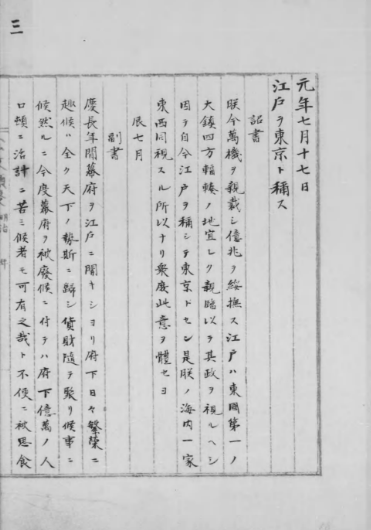 三
元年七月十七日
江戸ヲ東京ト稱ス
詔書
朕今萬機ヲ親裁シ億兆ヲ綏撫ス江戸ハ東國第一ノ
大鎮四方輻輳ノ地宜シク親臨以テ其政ヲ視ルヘシ
因テ自今江戸ヲ稱シテ東京トセン是朕ノ海内一家
東西同視スル所以ナリ衆庶此意ヲ體セヨ
辰七月
副書
慶長年間幕府ヲ江戸ニ開キシヨリ府下日々繁榮ニ
趣候ハ全ク天下ノ勢斯ニ歸シ貨財隨テ聚リ候事ニ
候然ルニ今度幕府ヲ被廢候ニ付テハ府下億萬ノ人
口頓ニ活計ニ苦ミ候者モ可有之哉ト不便ニ被思食